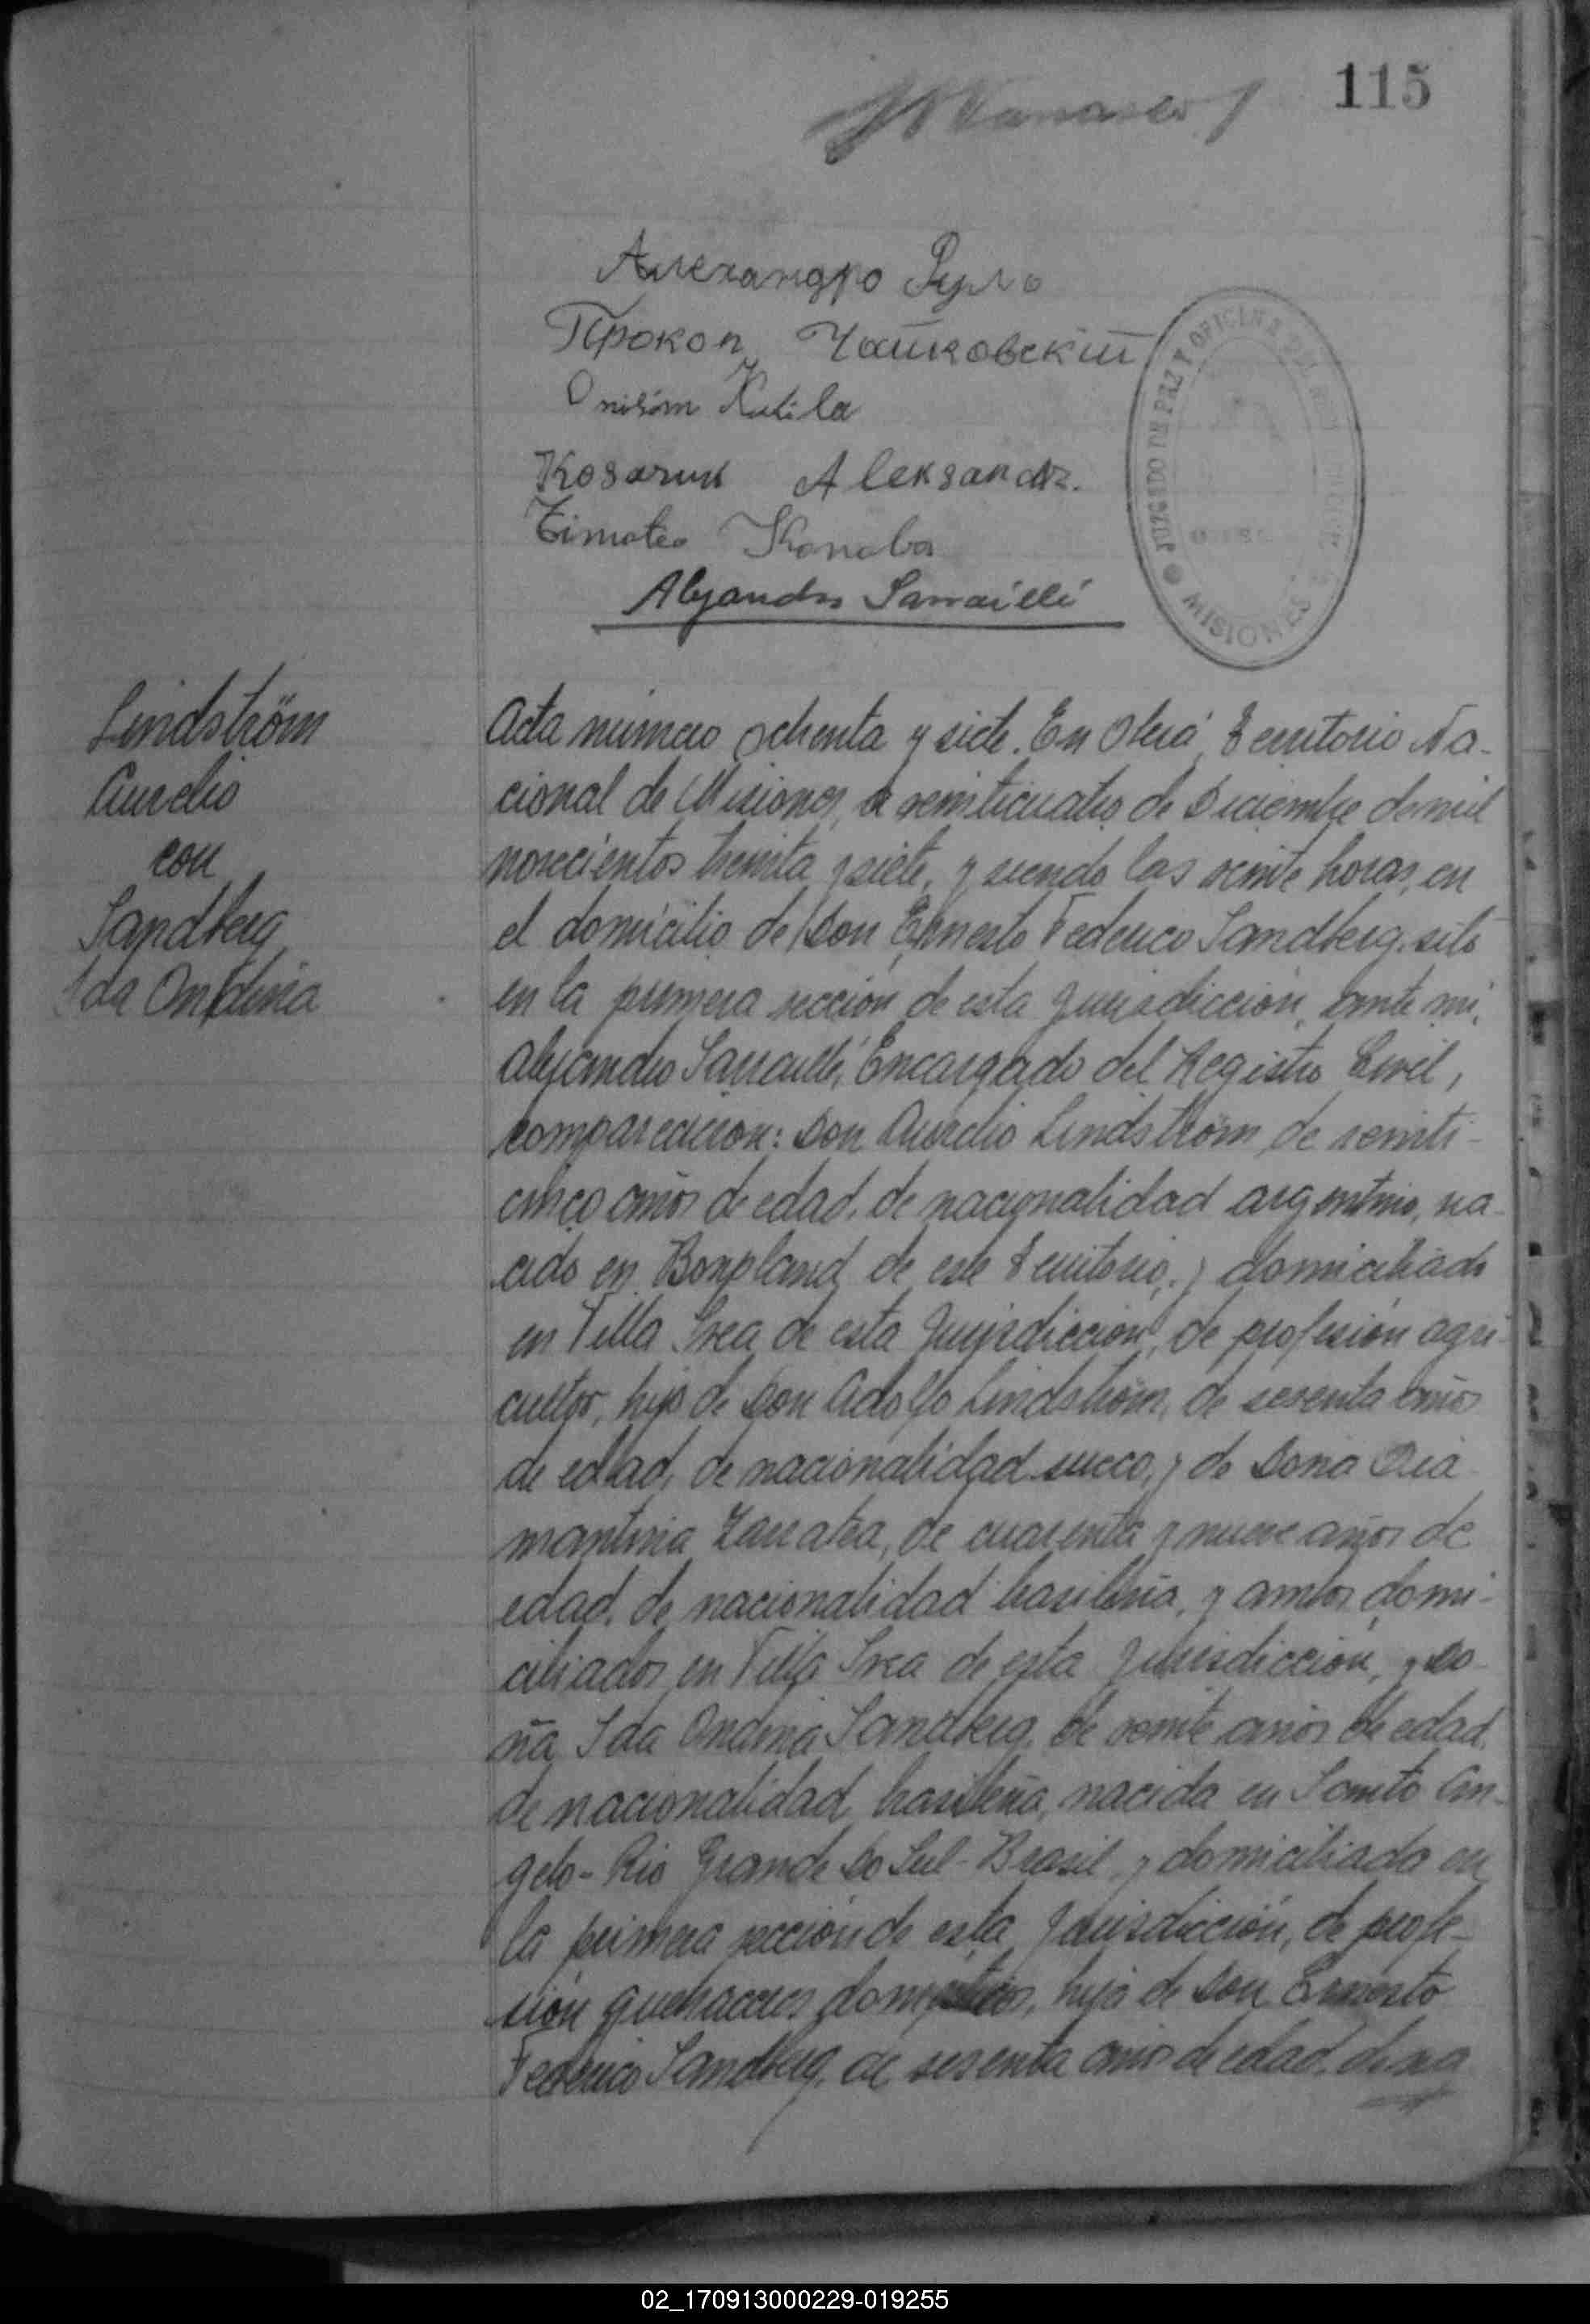 115
Прокоп Чайковский
Onisim Kutila
Aleksandr.
Timoteo Konoba
Alejandro Sarrailli
JUZGADO DE PAZ Y OFICINA DEL REG
MISIONES
Lindström
Aurelio
con
Sandberg
Ida Ondina
Acta número ochenta y siete. En Oberá, Territorio Na-
cional de Misiones, a veinticuatro de Diciembre de mil
novecientos treinta y siete, y siendo las veinte horas, en
el domicilio de Don Ernesto Federico Sandberg, sito
en la primera sección de esta Jurisdicción, ante mi,
Alejandro Sarrailli, Encargado del Registro Civil,
comparecieron: Don Aurelio Lindström, de veinti-
cinco años de edad, de nacionalidad argentino, na-
cido en Bonpland de este Territorio, y domiciliado
en Villa Svea de esta Jurisdicción, de profesión agri-
cultor, hijo de Don Adolfo Lindström, de sesenta años
de edad, de nacionalidad sueco, y de Doña Dia
mantina Zarratea, de cuarenta y nueve años de
edad, de nacionalidad brasileña, y ambos domi-
ciliados en Villa Svea de esta Jurisdicción, y Do-
ña Ida Ondina Sandberg, de veinte años de edad,
de nacionalidad brasileña, nacida en Santo An-
gelo - Rio Grande Do Sul - Brasil, y domiciliada en
la primera sección de esta Jurisdicción, de profe-
sión quehaceres domésticos, hija de Don Ernesto
Federico Sandberg, de sesenta años de edad, de na
02_170913000229-019255